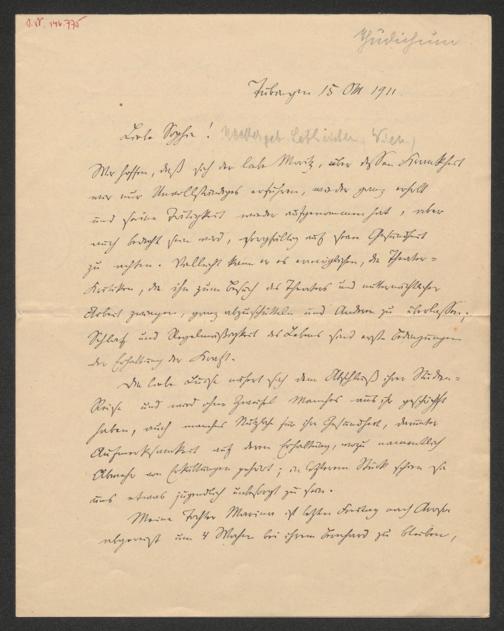 I.N. 146.775
Thüdichum
Tübingen 15 Okt 1911
Liebe Sophie! Wien,
Wir hoffen, daß sich der liebe Moritz, über dessen Krankheit
wir nur Unvollständiges erfuhren, wieder ganz erholt
und seine Tätigkeit wieder aufgenommen hat, aber
auch bedacht sein wird, sorgfältig auf seine Gesundheit
zu achten. Vielleicht kann er es ermöglichen, die Theater-
Kritiken, die ihn zum Besuch des Theaters und mitternächtlicher
Arbeit zwingen, ganz abzuschütteln und Andern zu überlassen;
Schlaf und Regelmäßigkeit des Lebens sind erste Bedingungen
der Erhaltung der Kraft.
Die liebe Luise nähert sich dem Abschluß ihrer Studien-
Reise und wird ohne Zweifel Manches
haben, auch manches Nützliche für ihre Gesundheit, darunter
Aufmerksamkeit auf deren Erhaltung, wozu namentlich
Abwehr von Erkältungen gehört; in letzterem Stück schien sie
uns etwas jugendlich unbesorgt zu sein.
Meine Tochter Marianne ist letzten Freitag nach Arosa
abgereist um 4 Wochen bei ihrem Bernhard zu bleiben,